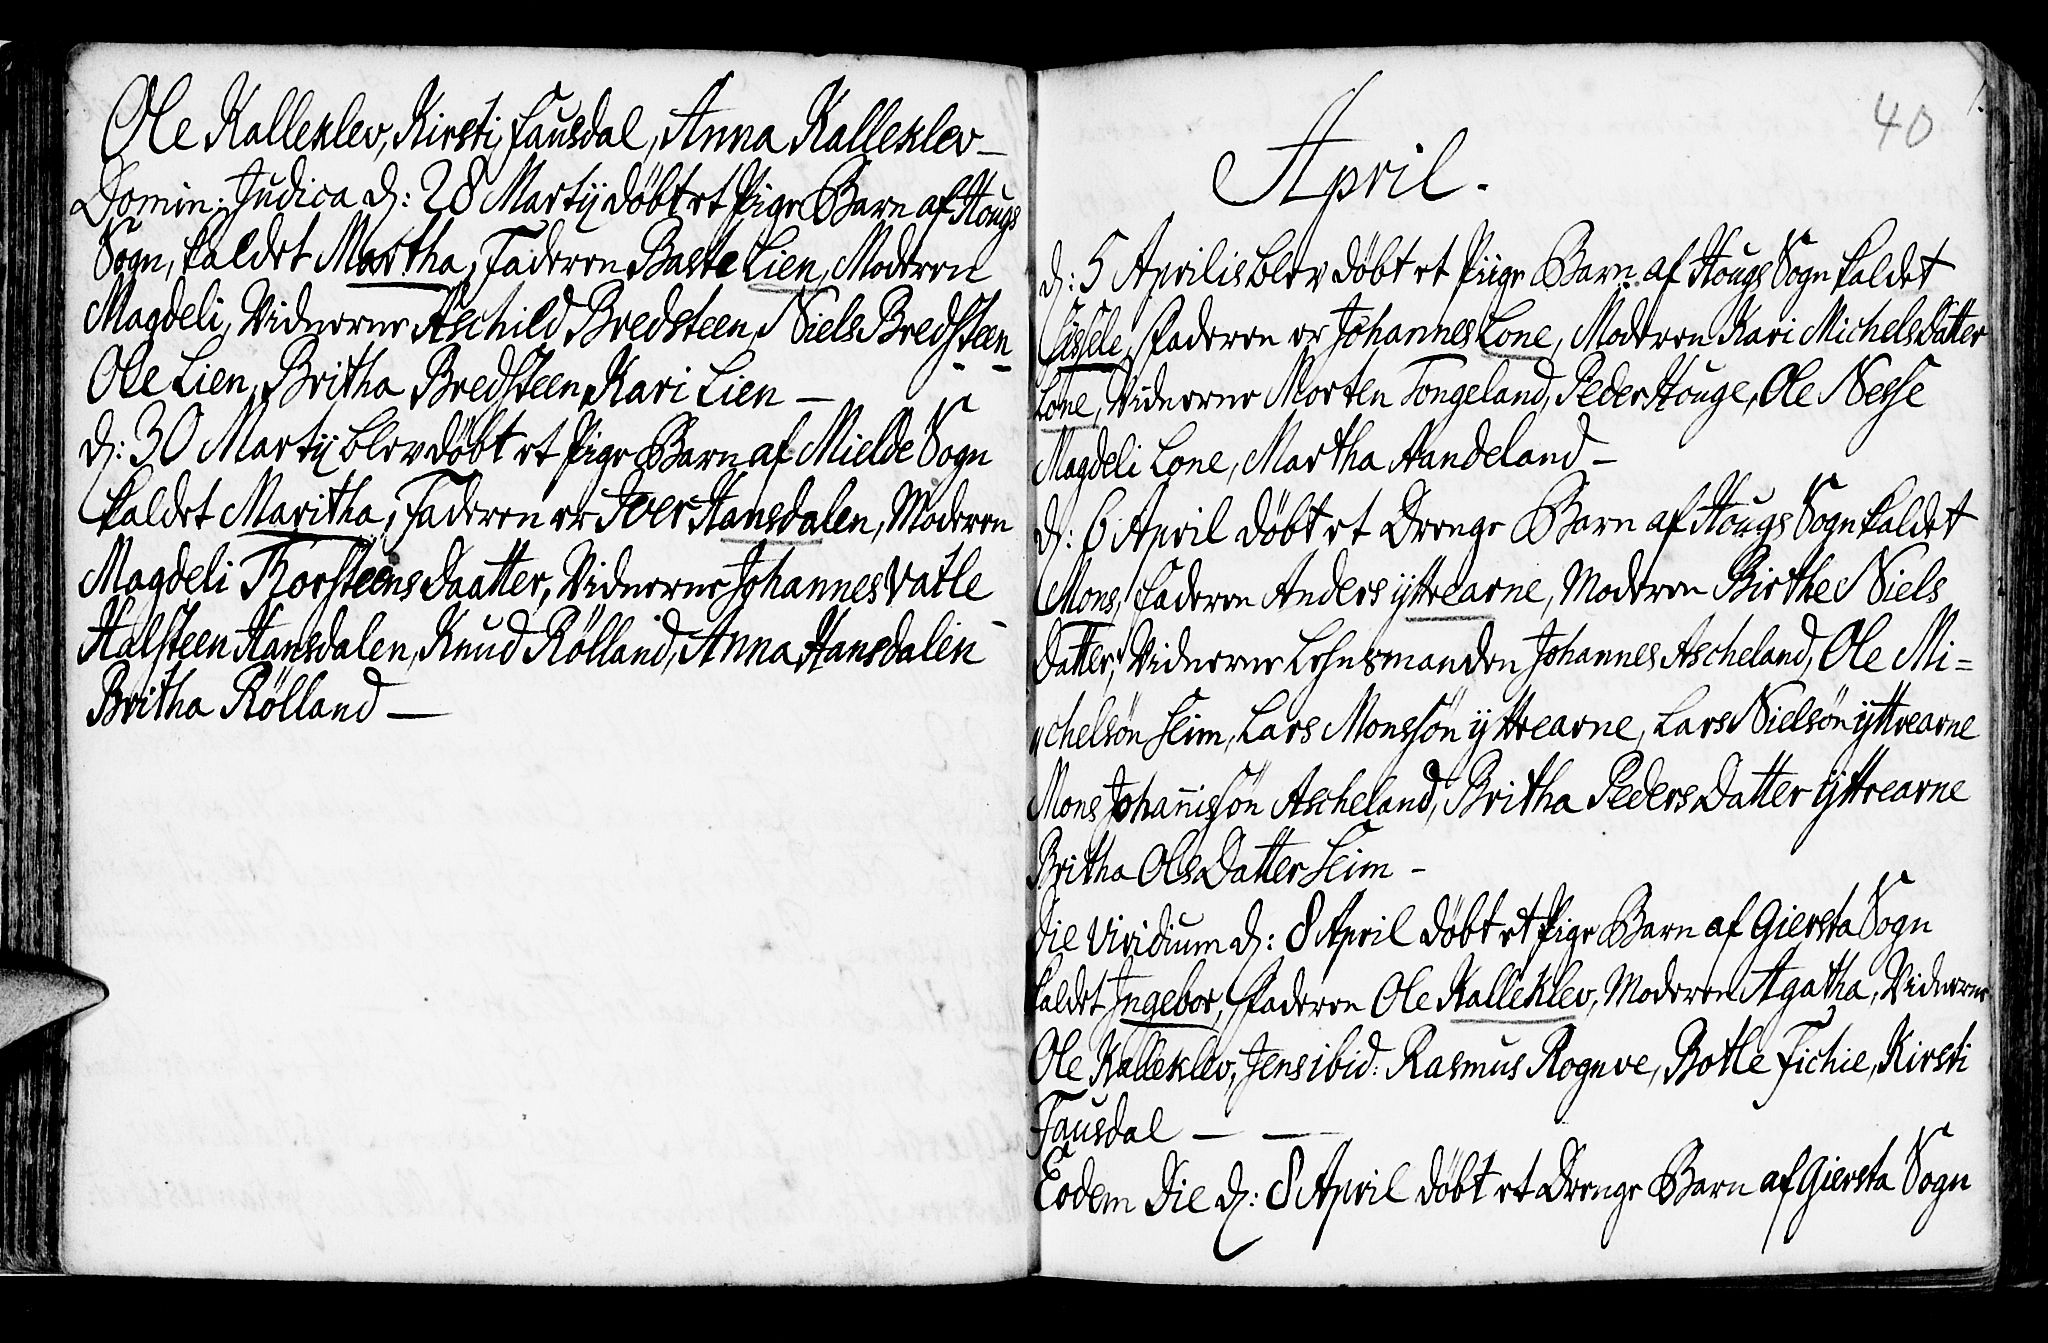 Ole Kalleklev, Kirsti Fausdal, Anna Kalleklev
Domin: Judica d: 28 Martij döbt et Pige Barn af Hougs
Sogn, kaldet Martha, Faderen Baste Lien, Moderen
Magdeli, Vidnerne Aschild Bredsteen, Niels Bredsteen
Ole Lien, Britha Bredsteen, Kari Lien —
d: 30 Martij blev döbt et Pige Barn af Mielde Sogn
kaldet Maritha, Faderen er Iver Hansdalen, Moderen
Magdeli Thorsteens Daatter, Vidnerne Johannes Vatle
Halsteen Hansdalen, Knud Rölland, Anna Hansdalen
Britha Rölland —
40
April.
d: 5 Aprilis blev döbt et Piige Barn af Hougs Sogn kaldet
Cissele, Faderen er Johannes Lone, Moderen Kari Michels Datter
Lone, Vidnerne Morten Tongeland, Peder Houge, Ole Nesse
Magdeli Lone, Martha Aandeland —
d: 6 April döbt et Drenge Barn af Hougs Sogn kaldet
Mons, Faderen Anders ÿttrearne, Moderen Birthe Niels
Datter, Vidnerne Lehnsmanden Johannes Ascheland, Ole Mi=
chelsön Seim, Lars Monssön ÿttrearne, Lars Nielsön ÿttrearne
Mons Johannissön Ascheland, Britha Peders Datter ÿttrearne
Britha Ols Datter Seim —
Die Viridium d: 8 April döbt et Pige Barn af Giersta Sogn
kaldet Ingebor, Faderen Ole Kalleklev, Moderen Agatha, Vidnerne
Ole Kalleklev, Jens ibid: Rasmus Rogneve, Botle Fichie, Kirsti
Fausdal — —
Eodem Die d: 8 April döbt et Drenge Barn af Giersta Sogn